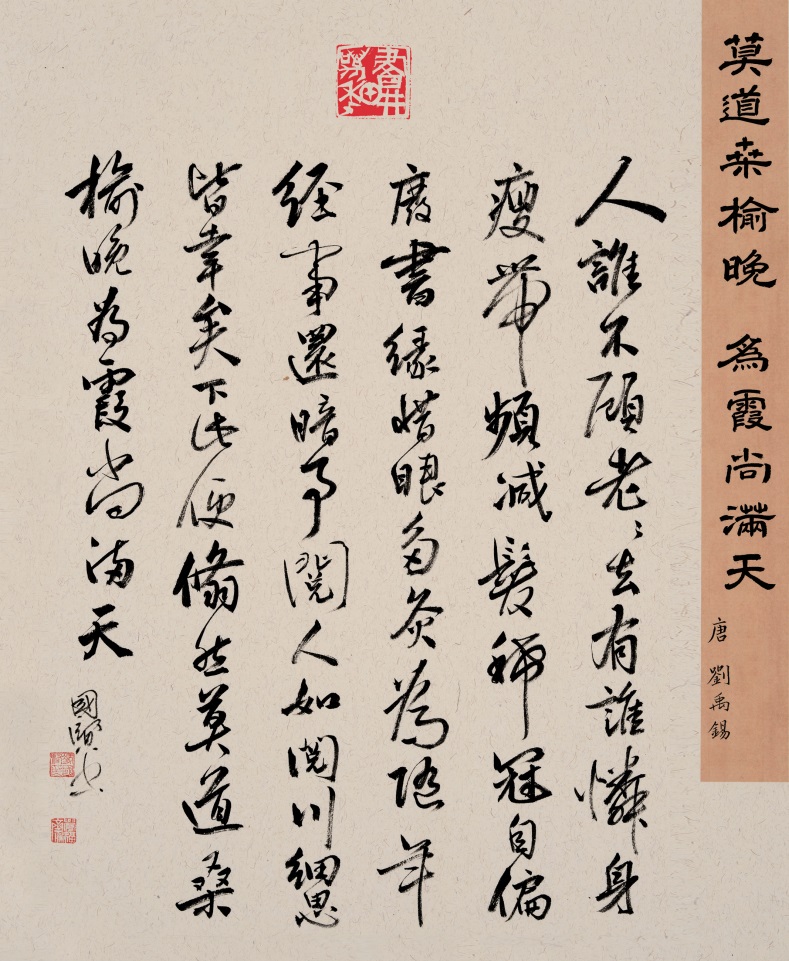 莫道桒榆晚 為霞尚滿天
唐 劉禹錫
人誰不顧老〻去有誰憐身
瘦帶頻減髮稀冠自偏
廢書緣惜眼多灸為隨年
經事還暗事閱人如閱川細思
皆幸矣下此便翛然莫道桑
榆晚為霞尚滿天
國賢書